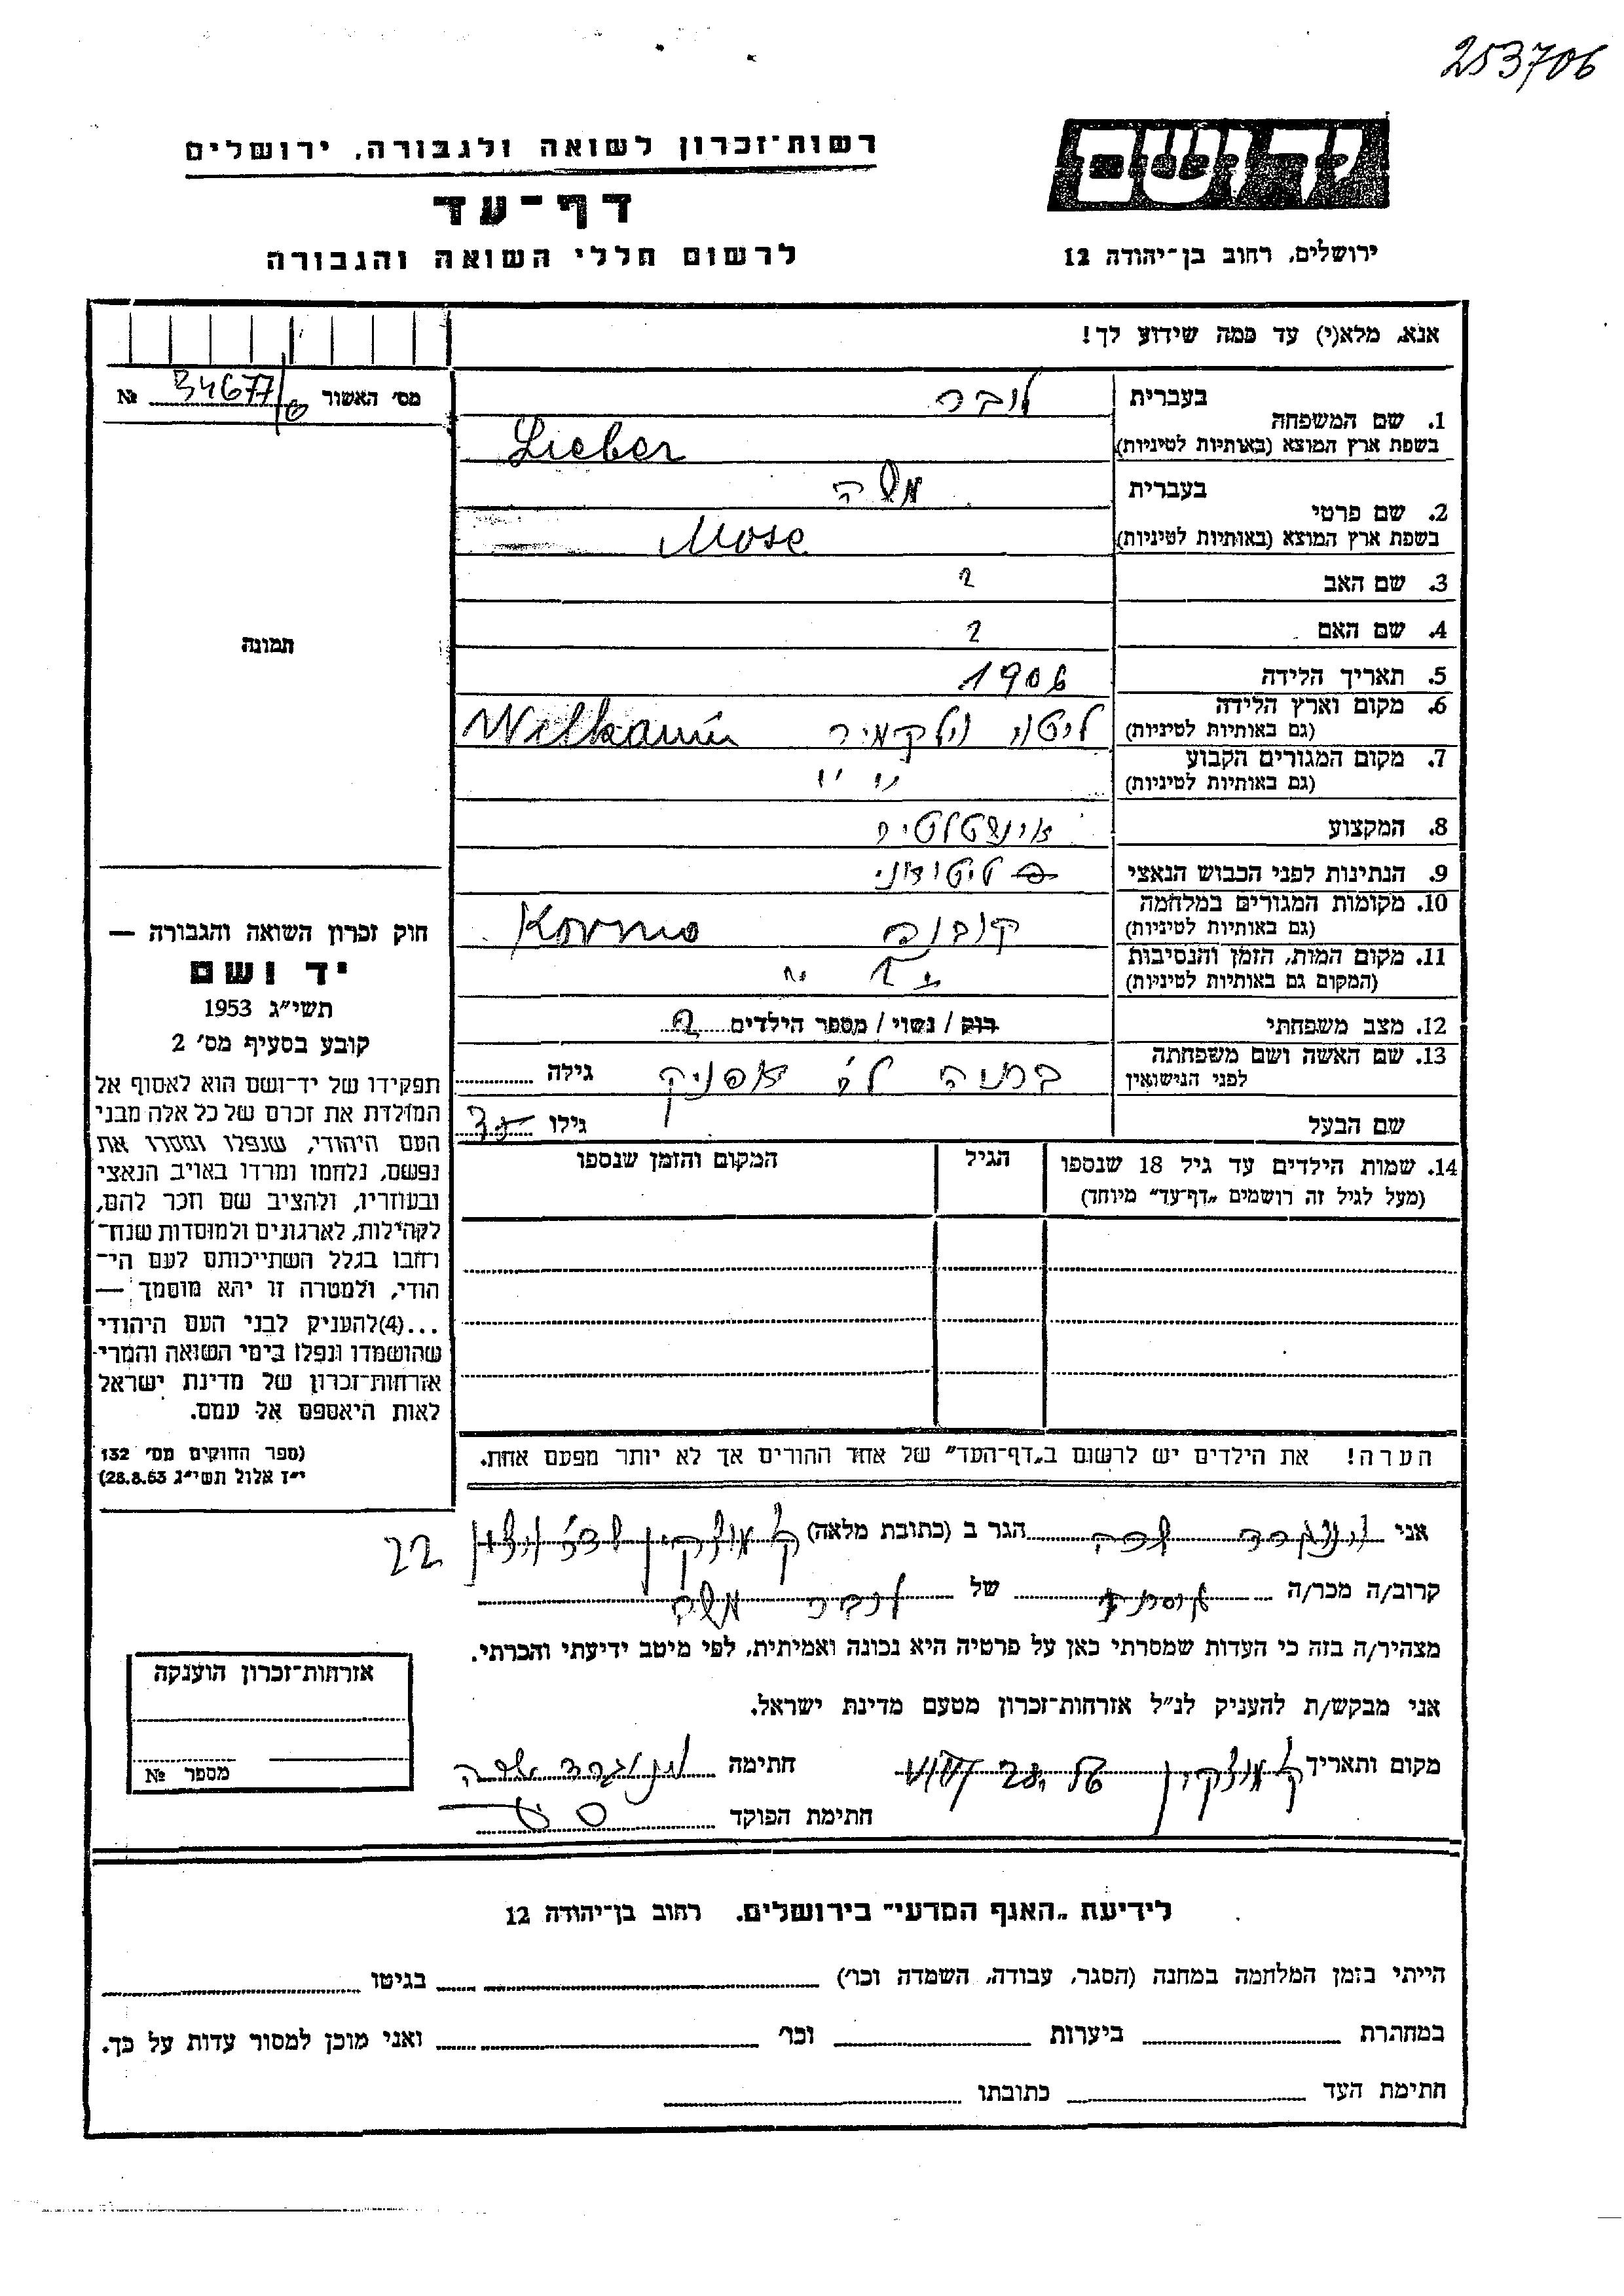 253706
יד ושם
רשות־זכרון לשואה ולגבורה, ירושלים
דף־עד
ירושלים, רחוב בן־יהודה 12
לרשום חללי השואה והגבורה
אנא, מלא(י) עד כמה שידוע לך!
מס׳ האשור 34677/ש №
בעברית לובר
1. שם המשפחה
בשפת ארץ המוצא (באותיות לטיניות) Lieber
בעברית משה
2. שם פרטי
בשפת ארץ המוצא (באותיות לטיניות) Mose
3. שם האב ?
4. שם האם ?
5. תאריך הלידה 1906
6. מקום וארץ הלידה
(גם באותיות לטיניות) ליטה וילקמיר
7. מקום המגורים הקבוע
(גם באותיות לטיניות) " "
8. המקצוע
9. הנתינות לפני הכבוש הנאצי
10. מקומות המגורים במלחמה
(גם באותיות לטיניות) קובנה Kovno
11. מקום המות, הזמן והנסיבות
(המקום גם באותיות לטיניות)
12. מצב משפחתי רוק / נשוי / מספר הילדים
13. שם האשה ושם משפחתה
לפני הנישואין גילה
שם הבעל גילו 35
14. שמות הילדים עד גיל 18 שנספו הגיל המקום והזמן שנספו
(מעל לגיל זה רושמים „דף־עד” מיוחד)
הערה! את הילדים יש לרשום ב„דף־העד” של אחד ההורים אך לא יותר מפעם אחת.
תמונה
חוק זכרון השואה והגבורה —
יד ושם
תשי״ג 1953
קובע בסעיף מס׳ 2
תפקידו של יד־ושם הוא לאסוף אל
המולדת את זכרם של כל אלה מבני
העם היהודי, שנפלו ומסרו את
נפשם, נלחמו ומרדו באויב הנאצי
ובעוזריו, ולהציב שם וזכר להם,
לקהילות, לארגונים ולמוסדות שנח־
רחבו בגלל השתייכותם לעם הי־
הודי, ולמטרה זו יהא מוסמך —
...(4)להעניק לבני העם היהודי
שהושמדו ונפלו בימי השואה והמרי
אזרחות־זכרון של מדינת ישראל
לאות היאספם אל עמם.
(ספר החוקים מס׳ 132
י״ז אלול תשי״ג 28.8.53)
אני הגר ב (כתובת מלאה) ק מוצקין 22
קרוב/ה מכר/ה של לובר משה
מצהיר/ה בזה כי העדות שמסרתי כאן על פרטיה היא נכונה ואמיתית, לפי מיטב ידיעתי והכרתי.
אני מבקש/ת להעניק לנ״ל אזרחות־זכרון מטעם מדינת ישראל.
מקום ותאריך ק מוצקין חתימה
חתימת הפוקד
אזרחות־זכרון הוענקה
מספר №
לידיעת „האגף המדעי” בירושלים, רחוב בן־יהודה 12
הייתי בזמן המלחמה במחנה (הסגר, עבודה, השמדה וכו׳) בגיטו
במחתרת ביערות וכו׳ ואני מוכן למסור עדות על כך.
חתימת העד כתובתו